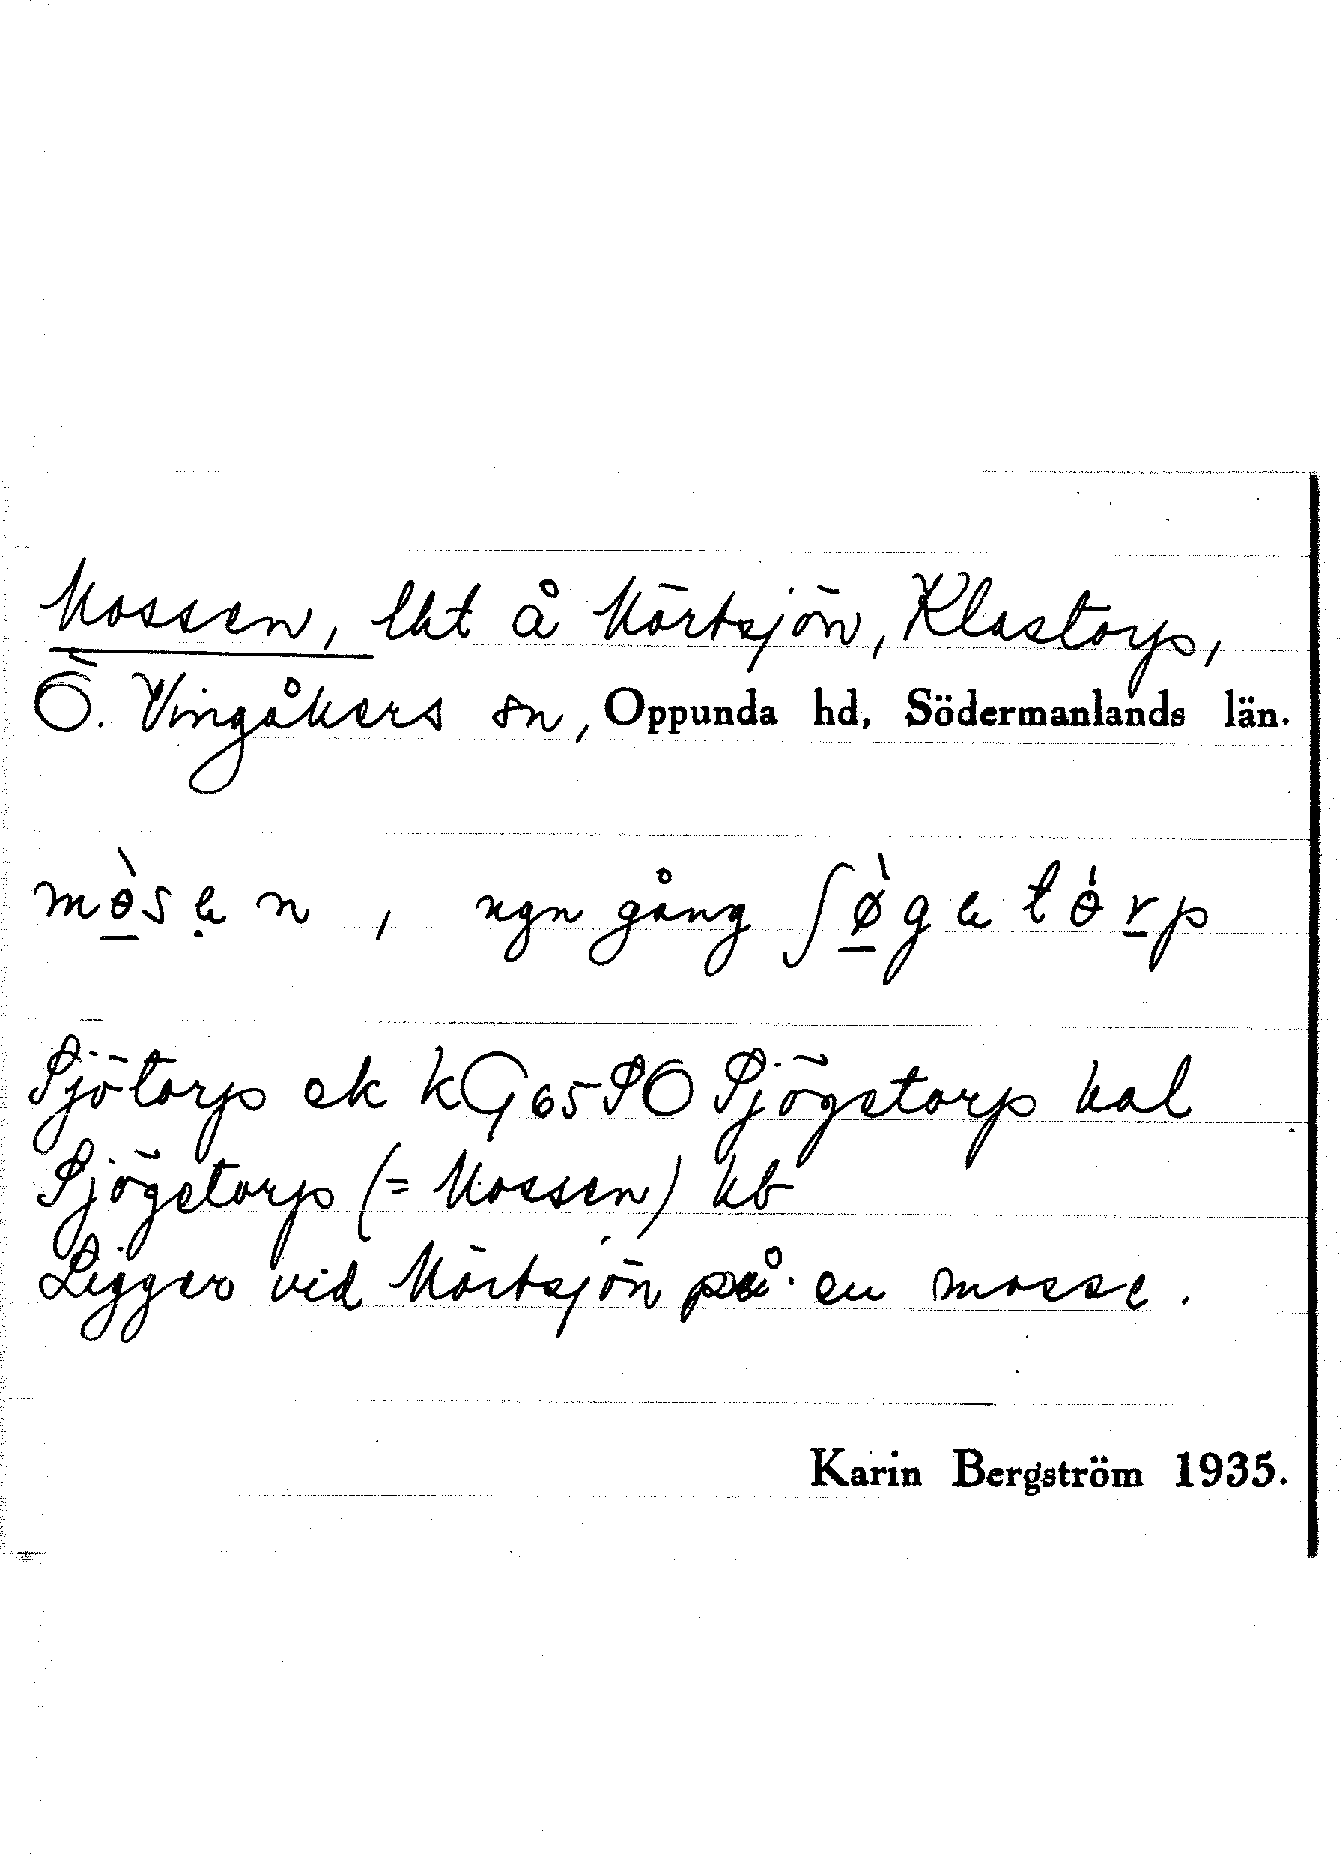 Mossen, lht å Mörtsjön, Klastorp,
Ö. Vingåkers sn, Oppunda hd, Södermanlands län.
mɵ̀sen, ngn gång ʃø̀getɵ́rp
Sjötorp ek kG65SO Sjögetorp kal
Sjögetorp (= Mossen) kb
Ligger vid Mörtsjön på en mosse.
Karin Bergström 1935.